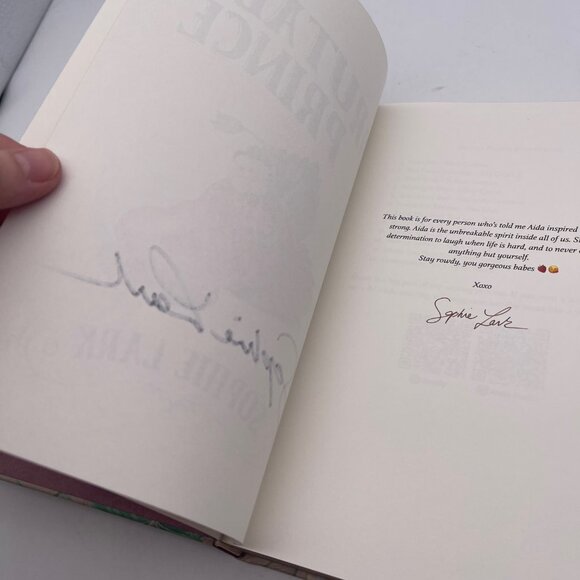 BRUTAL
PRINCE
Sophie Lark
SOPHIE LARK
This book is for every person who's told me Aida inspired
strong. Aida is the unbreakable spirit inside all of us.
determination to laugh when life is hard, and to never
anything but yourself.
Stay rowdy, you gorgeous babes 🍓😘
Xoxo
Sophie Lark